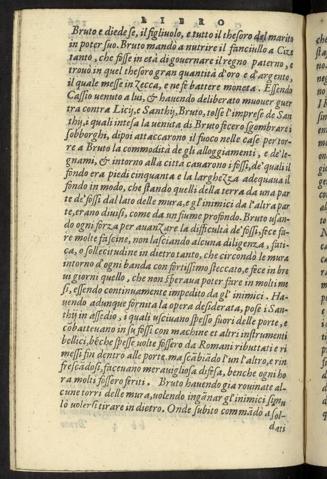 LIBRO
Bruto e diede se, il figliuolo, e tutto il thesoro del marito
in poter suo. Bruto mandò a nutrire il fanciullo a Cize
tanto, che fosse in età di governare il regno paterno, e
trouò in quel thesoro gran quantità d'oro e d'argento,
il quale messe in zecca, e ne fe battere moneta. Essendo
Cassio uenuto a lui, & hauendo deliberato muouer guer
tra contra Licij, e Santhij, Bruto, tolse l'imprese de San
thij, i quali intesa la uenuta di Bruto fecero sgombrare i
sobborghi, dipoi attaccarono il fuoco nelle case per tor-
re a Bruto la commodità de gli alloggiamenti, e de' le-
gnami, & intorno alla città cauarono i fossi, de' quali il
fondo era piedi cinquanta e la larghezza adequaua il
fondo in modo, che stando quelli della terra da una par
te de' fossi dal lato delle mura, e gl'inimici da l'altra par
te, erano diuisi, come da un fiume profondo. Bruto usan-
do ogni forza per auanzare la difficultà de' fossi, fece fa-
re molte fascine, non lasciando alcuna diligenza, fati-
ca, o sollecitudine in dietro tanto, che circondò le mura
intorno d'ogni banda con fortissimo steccato, e fece in bre
ui giorni quello, che non speraua poter fare in molti me
si, essendo continuamente impedito da gl'inimici. Ha-
uendo adunque fornita la opera desiderata, pose i San-
thij in assedio, i quali usciuano spesso fuori delle porte, e
cobatteuano in su fossi con machine et altri instrumenti
bellici, bẽche spesse uolte fossero da Romani ributtati e ri
messi fin dentro alle porte. ma scãbiãdo l'un l'altro, e rin
frescãdosi, faceuano merauigliosa difesa, benche ogni ho
ra molti fossero feriti. Bruto hauendo gia rouinate al-
cune torri delle mura, uolendo ingãnar gl'inimici simu
lò uolersi tirare in dietro. Onde subito commãdò a sol-
dati